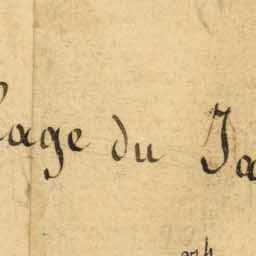 lage du Ja